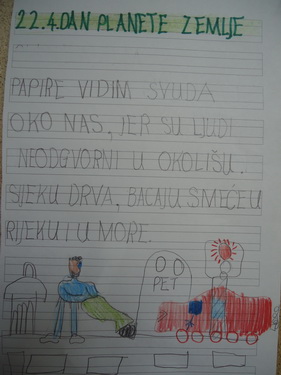 22.4. DAN PLANETE ZEMLJE
PAPIRE VIDIM SVUDA
OKO NAS, JER SU LJUDI
NEODGVORNI U OKOLIŠU.
SIJEKU DRVA, BACAJU SMEĆE U
RIJEKU I U MORE.
PET